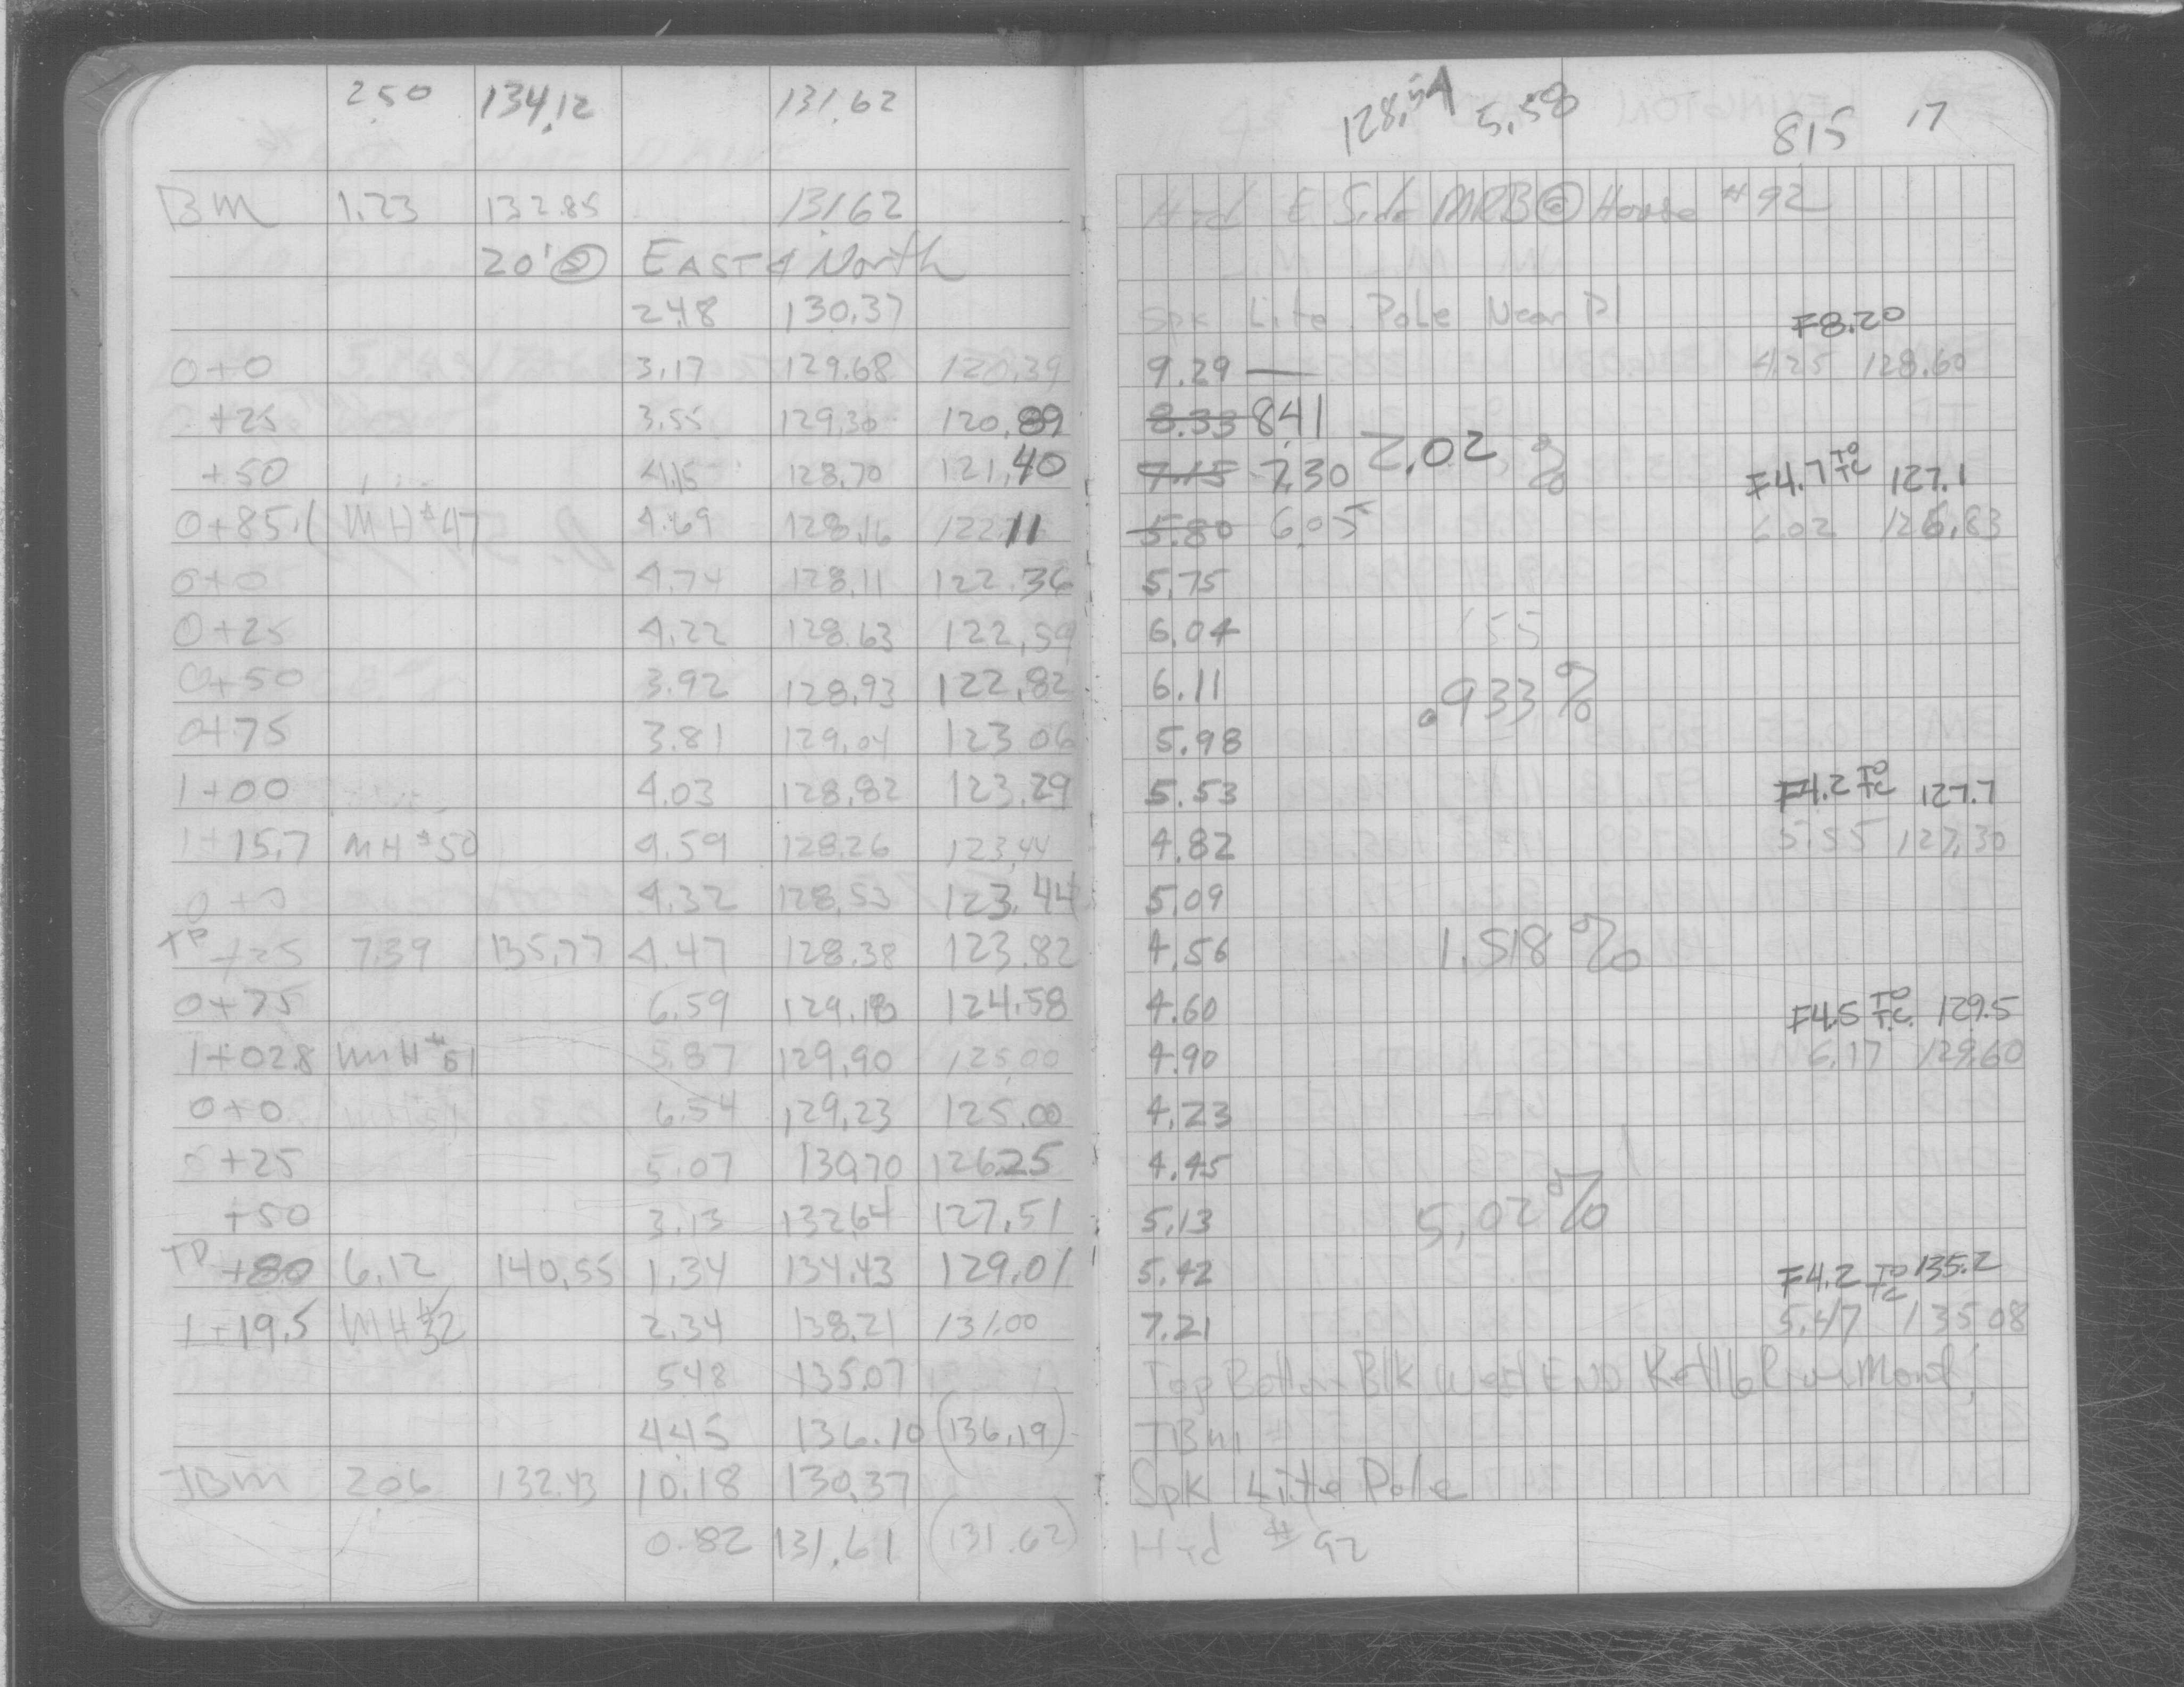 2.50 134.12 131.62
BM 1.23 132.85 131.62
20' @ EAST & North
2.48 130.37
0+0 3.17 129.68 120.39
+25 3.55 129.30 120.89
+50 4.15 128.70 121.40
0+85.1 MH#47 4.69 128.16 122.11
0+0 4.74 128.11 122.36
0+25 4.22 128.63 122.59
0+50 3.92 128.93 122.82
0+75 3.81 129.04 123.06
1+00 4.03 128.82 123.29
1+15.7 MH#50 4.59 128.26 123.44
0+0 4.32 128.53 123.44
TP +25 7.39 135.77 4.47 128.38 123.82
0+75 6.59 129.18 124.58
1+02.8 MH#51 5.87 129.90 125.00
0+0 6.54 129.23 125.00
0+25 5.07 130.70 126.25
+50 3.13 132.64 127.51
TP +80 6.12 140.55 1.34 134.43 129.01
1+19.5 MH#52 2.34 138.21 131.00
5.48 135.07
4.45 136.10 (136.19)
TBM 2.06 132.43 10.18 130.37
0.82 131.61 (131.62)
128.54 5.58 8.15 17
Hyd E Side MRB @ House #92
Spk Lite Pole Near Pl
F8.20
9.29 — 4.25 128.60
8.33 8.41
7.15 7.30 2.02 % F4.7 TO TC 127.1
5.80 6.05 6.02 126.83
5.75
6.04 155
6.11 .933%
5.98
5.53 F4.2 TO TC 127.7
4.82 5.55 127.30
5.09
4.56 1.518%
4.60 F4.5 TO T.C. 129.5
4.90 6.17 129.60
4.23
4.45
5.13 5.02%
5.42 F4.2 TO TC 135.2
7.21 5.47 135.08
Top Bottom Blk West END
TBM
Spk Lite Pole
Hyd #92